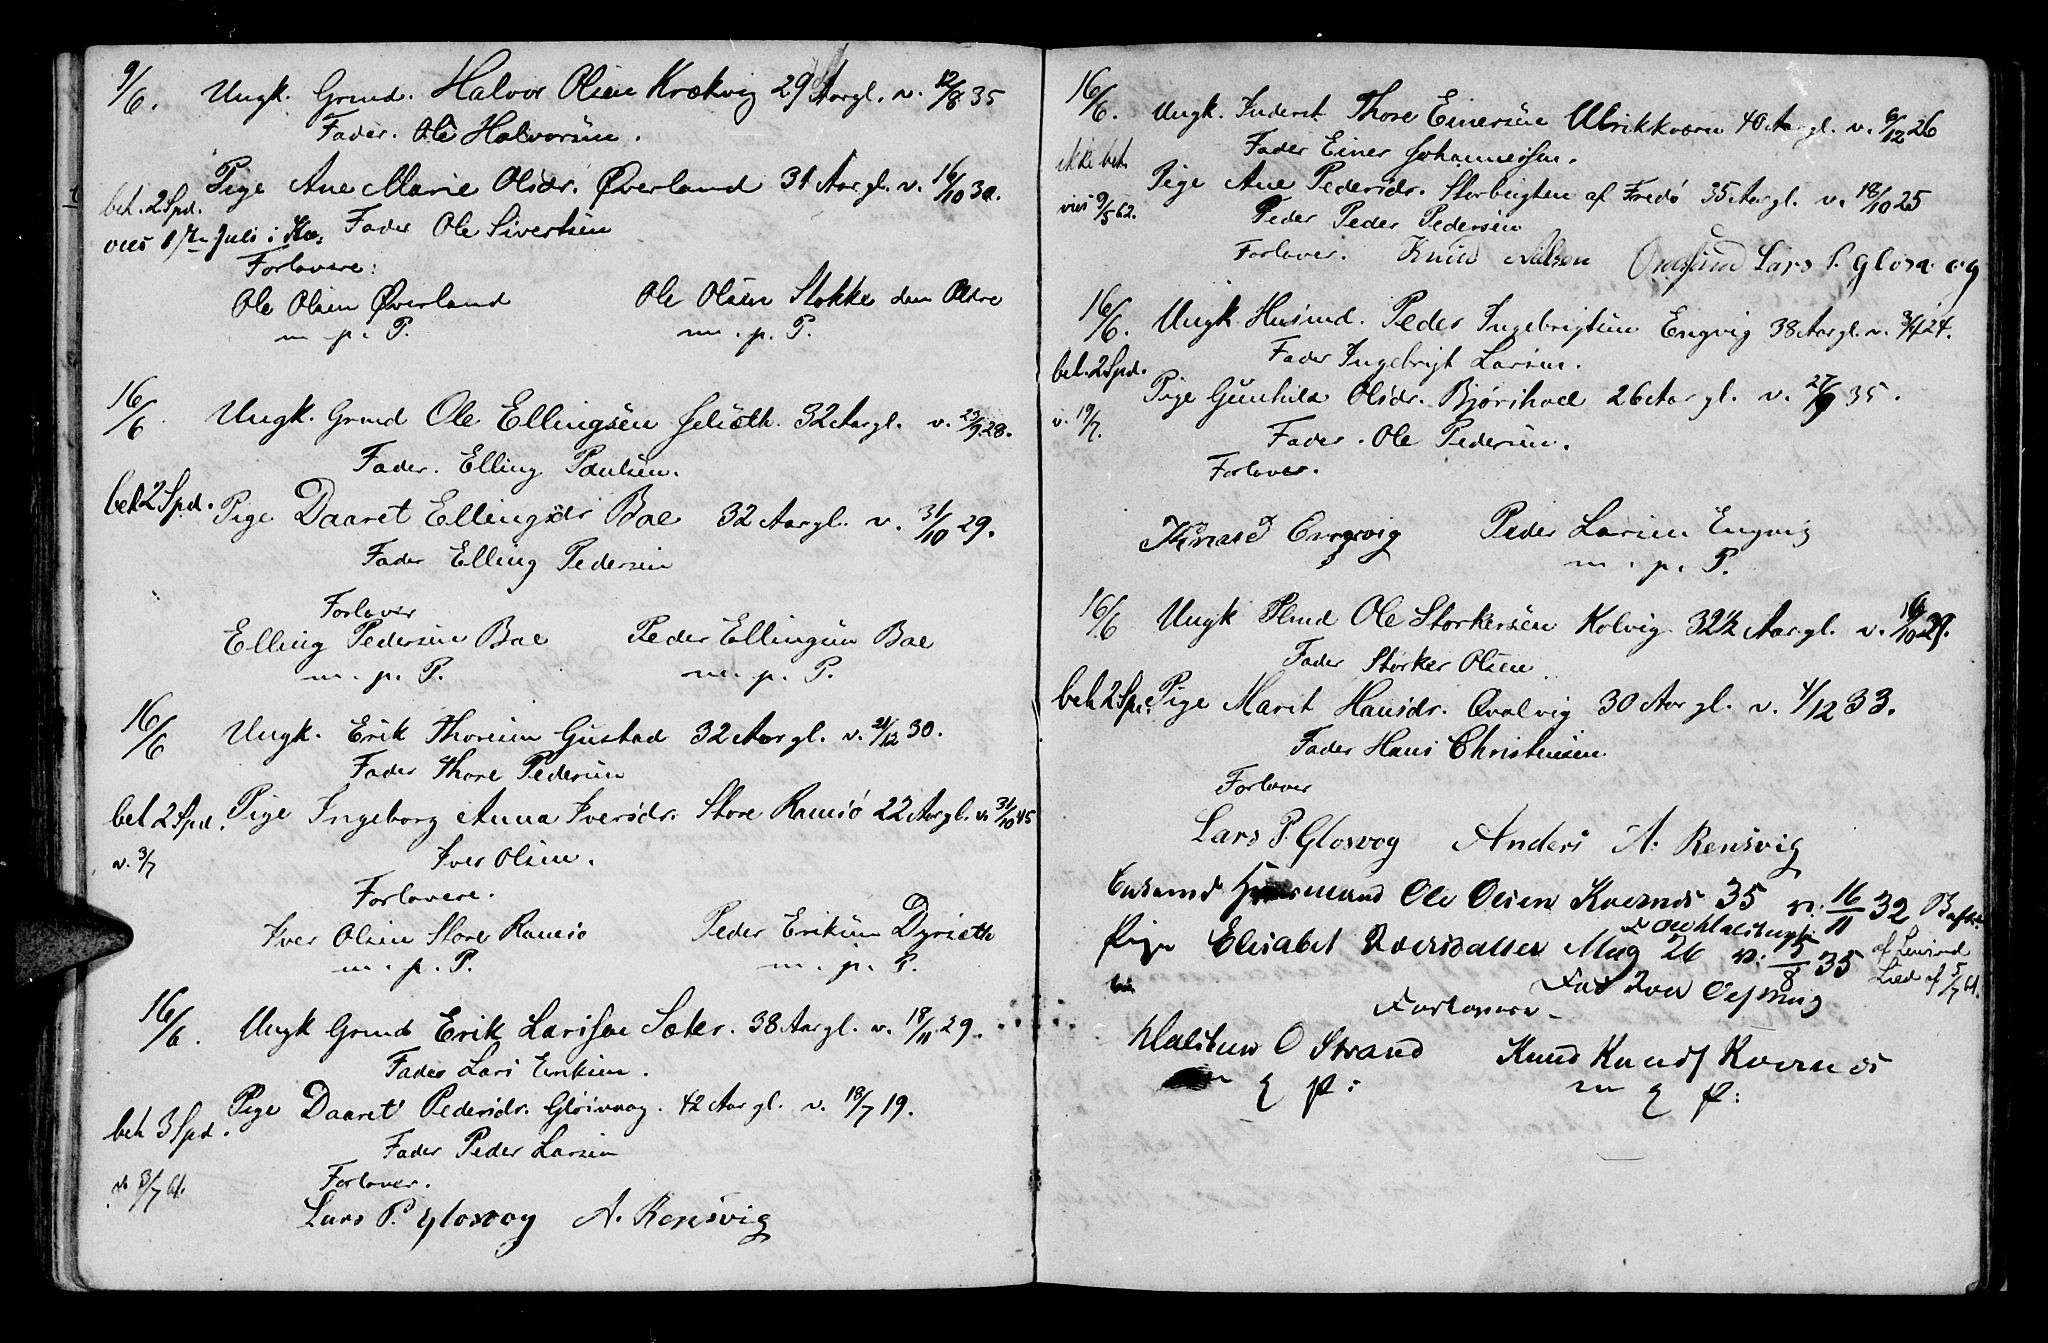 9/6. Ungk. Grmd. Halvor Olsen Krækvig 29 Aargl. v. 12/8 35
Fader. Ole Halvorsen.
Pige Ane Marie Olsdr. Øverland 31 Aar gl. v. 16/10 30.
bet. 2 Spd.
viet 17de Juli i Kv.
Fader Ole Sivertsen
Forlovere:
Ole Olsen Øverland Ole Olsen Stokke den Ældre
m. p. P. m. p. P.
16/6. Ungk. Grmd Ole Ellingsen 32 Aargl. v. 23/9 28.
Fader. Elling Paulsen.
bet 2 Spd. Pige Daaret Ellingsdr Boe 32 Aargl. v. 31/10 29.
Fader Elling Pedersen
Forlover
Elling Pedersen Boe Peder Ellingsen Boe
m. p. P. m. p. P.
16/6 Ungk. Erik Thoresen Gustad 32 Aar gl. v. 21/12 30.
Fader Thore Pedersen
bet 2 Spd. Pige Ingeborg Anna Iversdr. Store Ramsø 22 Aargl. v. 31/10 45
v. 3/7 Iver Olsen.
Forlovere.
Iver Olsen Store Ramsø Peder Eriksen Dyrseth
m. p. P. m. p. P.
16/6. Ungk Grmd Erik Larssen Sæter. 38 Aargl. v. 18/11 29.
Fader Lars Eriksen.
Pige Daaret Pedersdr. Glosvaag. 42 Aar gl. v. 18/7 19.
bet 3 Spd.
Fader Peder Larsen
v. 3/7 61. Forlover.
Lars P. Glosvog A. Rensvig
16/6. Ungk. Inderst Thore Einersen Ulrikkværn 40 Aar gl. v. 6/12 26
Fader Einer Johannessen.
ikke bet. Pige Ane Pedersdr. af Fredø 35 Aargl. v. 18/10 25
viet 9/5 62. Peder Pedersen
Forlover. Knud Nilsen Omsund Lars P. Glosvog
16/6. Ungk. Husmd. Peder Ingebrigtsen Engvig 38 Aar gl. v. 24.
Fader Ingebrigt Larsen.
bet. 2 Spd. Pige Gunhild Olsdr. Bjørihoel 26 Aar gl. v. 27/9 35.
v. 19/7. Fader. Ole Pedersen.
Forlover.
Engvig Peder Larsen Engvig
m. p. P.
16/6 Ungk Ole Storkersen Kolvig 32½ Aargl. v. 29.
Fader Størker Olsen.
bet 2 Spd. Pige Marit Hansdr. Qvalvig 30 Aar gl. v. 4/12 33.
Fader Hans Christensen
Forlover
Lars P. Glosvog Anders A. Rensvig
Husmand Ole Olsen Kvernes 35 v. 16/11 32
Pige Elisabet Iversdatter Mag 26 v. 5/8 35
Lied af 5/7 61.
Forlovere
Halstein O Strand Knud Knuds Kvernes
m p: m p: